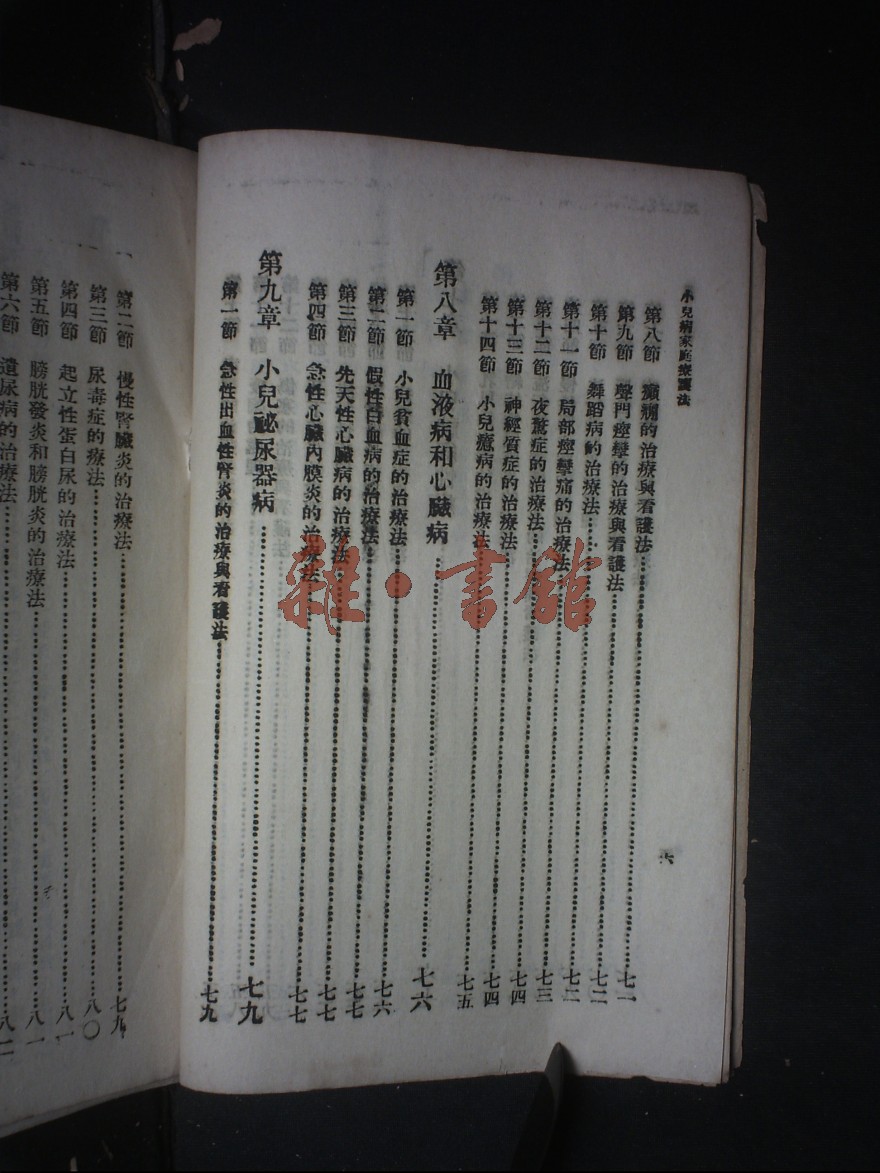 小兒病家庭療護法
六
第八節 癲癇的治療與看護法……七一
第九節 聲門痙攣的治療與看護法……七一
第十節 舞蹈病的治療法……七二
第十一節 局部痙攣痛的治療法……七二
第十二節 夜驚症的治療法……七三
第十三節 神經質症的治療法……七四
第十四節 小兒瘛病的治療法……七五
第八章 血液病和心臟病……七六
第一節 小兒貧血症的治療法……七六
第二節 假性白血病的治療法……七七
第三節 先天性心臟病的治療法……七七
第四節 急性心臟內膜炎的治療法……七七
第九章 小兒泌尿器病……七九
第一節 急性出血性腎炎的治療與看護法……七九
第二節 慢性腎臟炎的治療法……七九
第三節 尿毒症的療法……八〇
第四節 起立性蛋白尿的治療法……八一
第五節 膀胱發炎和膀胱炎的治療法……八一
第六節 遺尿病的治療法……八二
雜·書館